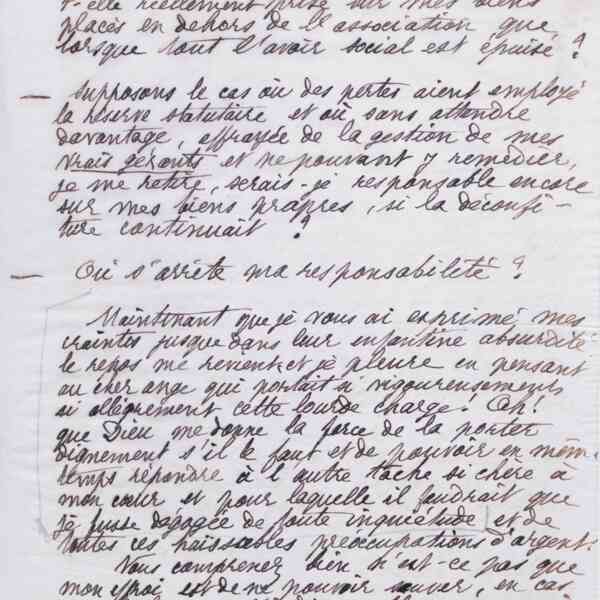 t-elle réellement prise sur mes biens
placés en dehors de l'association que
lorsque tout l'avoir social est épuisé ?
— Supposons le cas où des pertes aient employé
la réserve statutaire et où sans attendre
davantage, effrayée de la gestion de mes
vrais gérants et ne pouvant y remédier,
je me retire, serais-je responsable encore
sur mes biens propres, si la déconfi-
ture continuait ?
— Où s'arrête ma responsabilité ?
Maintenant que je vous ai exprimé mes
craintes jusque dans leur enfantine absurdité
le repos me revient et je pleure en pensant
au cher ange qui portait si vigoureusement
si allégrement cette lourde charge ! Oh !
que Dieu me donne la force de la porter
dignement s'il le faut et de pouvoir en mêm
temps répondre à l'autre tâche si chère à
mon cœur et pour laquelle il faudrait que
je fusse dégagée de toute inquiétude et de
toutes ces haïssables préoccupations d'argent.
Vous comprenez bien n'est-ce pas que
mon effroi est de ne pouvoir sauver, en cas